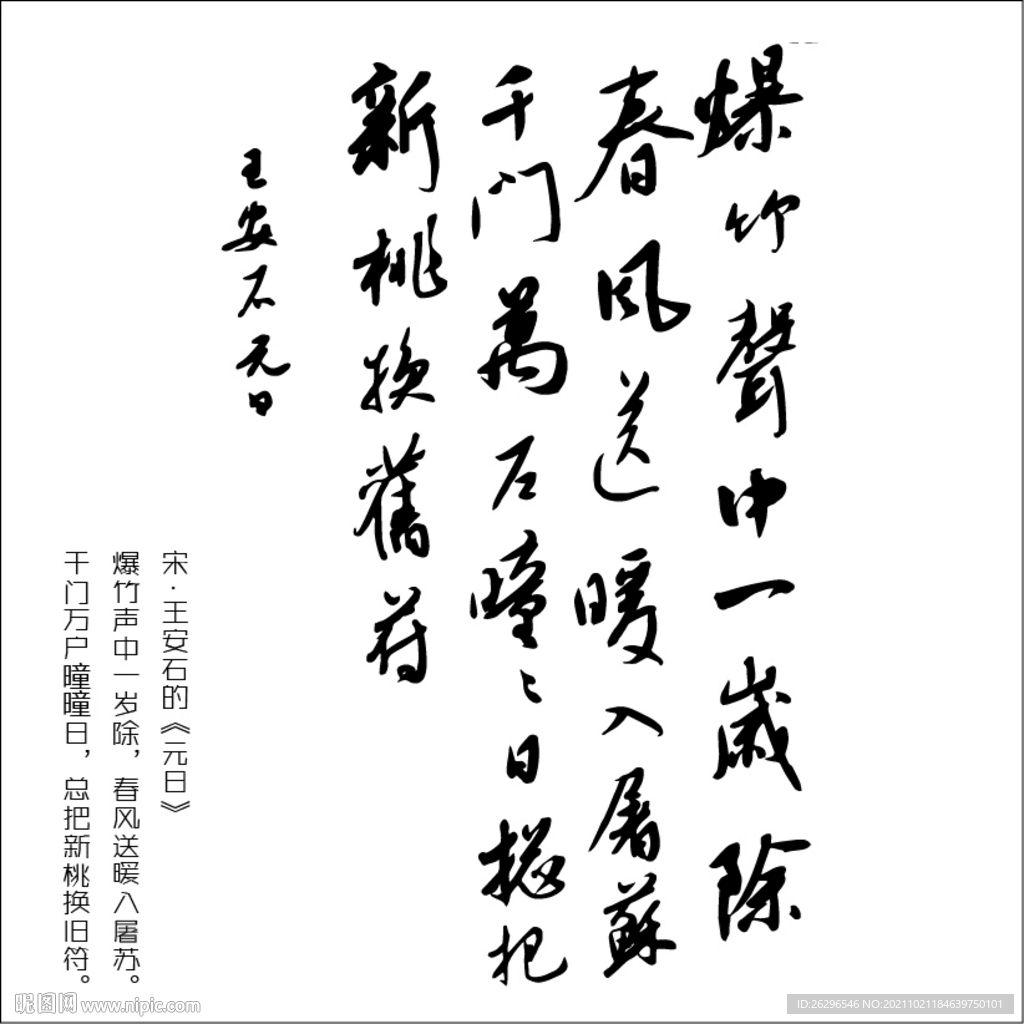 爆竹聲中一歲除
春風送暖入屠蘇
千门萬户曈〻日揔把
新桃换舊符
王安石元日
宋·王安石的《元日》
爆竹声中一岁除，春风送暖入屠苏。
千门万户曈曈日，总把新桃换旧符。
昵图网 www.nipic.com
ID:26296546 NO:20211021184639750101